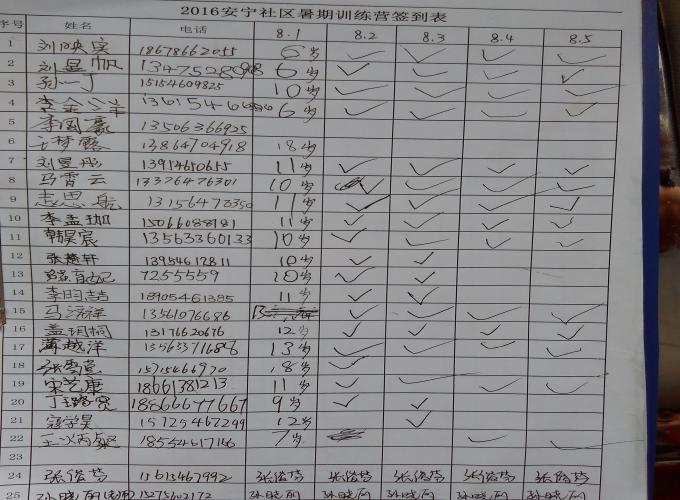 2016安宁社区暑期训练营签到表
序号 姓名 电话 8.1 8.2 8.3 8.4 8.5
1 刘映実 18678662055 6岁 ✓ ✓ ✓ ✓
2 刘显帆 6岁 ✓ ✓ ✓ ✓
3 孙一丁 15154609825 10岁 ✓ ✓ ✓ ✓
4 6岁 ✓ ✓ ✓ ✓
5 李国豪 13506366925
6 王梦露 13864704918 18岁
7 刘昱彤 13914650655 11岁 ✓ ✓ ✓ ✓
8 马霄云 13376476301 10岁 ✓ ✓ ✓ ✓
9 思航 13156473350 11岁 ✓ ✓ ✓ ✓
10 李孟珈 15066088181 11岁 ✓ ✓ ✓ ✓
11 韩昊宸 13563360133 10岁 ✓ ✓ ✓ ✓
12 张楚轩 13954612811 10岁 ✓ ✓
13 7255559 10岁 ✓ ✓
14 李昀喆 18905461385 11岁 ✓ ✓
15 马 祥 13561076686 ✓ ✓ ✓ ✓
16 盖玥桐 13176620676 12岁 ✓ ✓ ✓ ✓
17 薄越洋 13岁 ✓ ✓ ✓ ✓
18 张雪 15715466970 18岁 ✓
19 宋艺康 18661381213 11岁 ✓ ✓ ✓ ✓
20 丁 18866677667 9岁 ✓ ✓
21 寇学昊 15725467299 12岁 ✓
22 王 18554617186 7岁 ✓ ✓
23
24 张俊芬 15615467992 张俊芬 张俊芬 张俊芬 张俊芬 张俊芬
25 孙晓丽 15275602172 孙晓丽 孙晓丽 孙晓丽 孙晓丽 孙晓丽